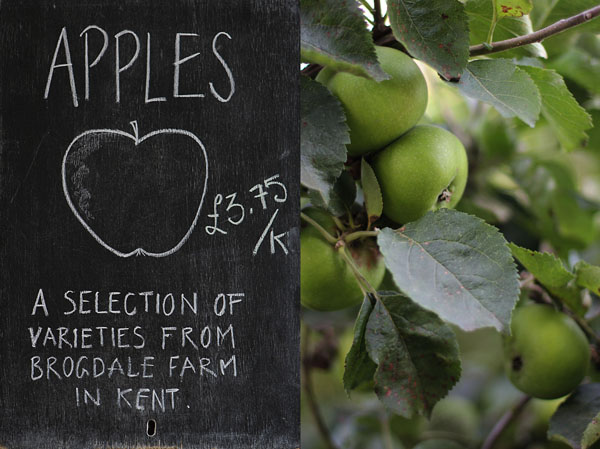 APPLES
£3.75
/K
A SELECTION OF
VARIETIES FROM
BROGDALE FARM
IN KENT.